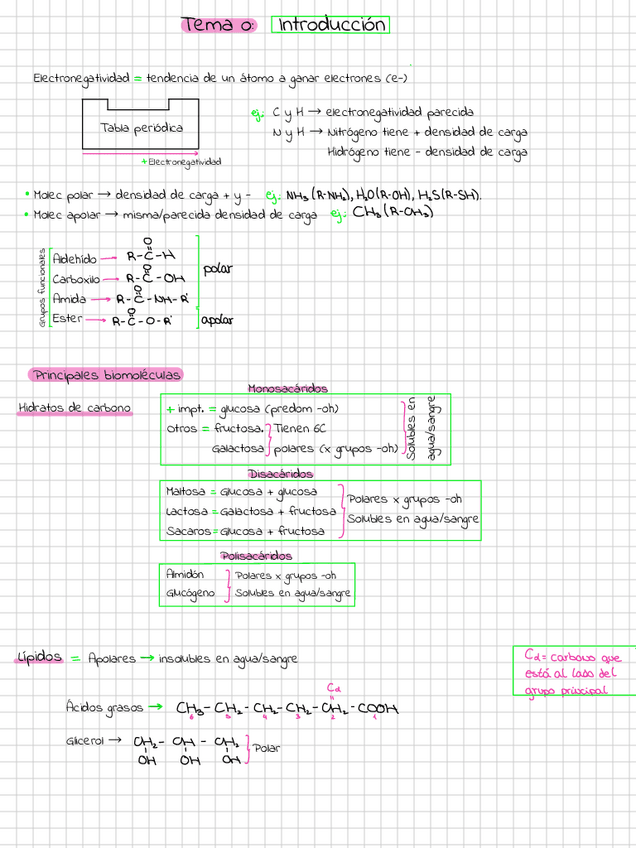 Tema 0: Introducción
Electronegatividad = tendencia de un átomo a ganar electrones (e-)
Tabla periódica
+ Electronegatividad
ej: C y H → electronegatividad parecida
N y H → Nitrógeno tiene + densidad de carga
Hidrógeno tiene - densidad de carga
• Molec polar → densidad de carga + y - ej: NH₃ (R-NH₂), H₂O (R-OH), H₂S (R-SH).
• Molec apolar → misma/parecida densidad de carga ej: CH₃ (R-CH₃)
Grupos funcionales
O
Aldehído → R-C-H
O
Carboxilo → R-C-OH
O
Amida → R-C-NH-R'
O
Ester → R-C-O-R'
polar
apolar
Principales biomoléculas
Hidratos de carbono
Monosacáridos
+ impt. = glucosa (predom -oh)
otros = fructosa. Tienen 6C
Galactosa polares (x grupos -oh)
Solubles en
agua/sangre
Disacáridos
Maltosa = Glucosa + glucosa
Lactosa = Galactosa + fructosa
Sacaros = Glucosa + fructosa
Polares x grupos -oh
Solubles en agua/sangre
Polisacáridos
Almidón
Glucógeno
Polares x grupos -oh
Solubles en agua/sangre
Lípidos = Apolares → insolubles en agua/sangre
Cα = carbono que
está al lado del
grupo principal
Cα
Ácidos grasos → CH₃-CH₂-CH₂-CH₂-CH₂-COOH
6 5 4 3 2 1
Glicerol → CH₂- CH - CH₂
OH OH OH
Polar